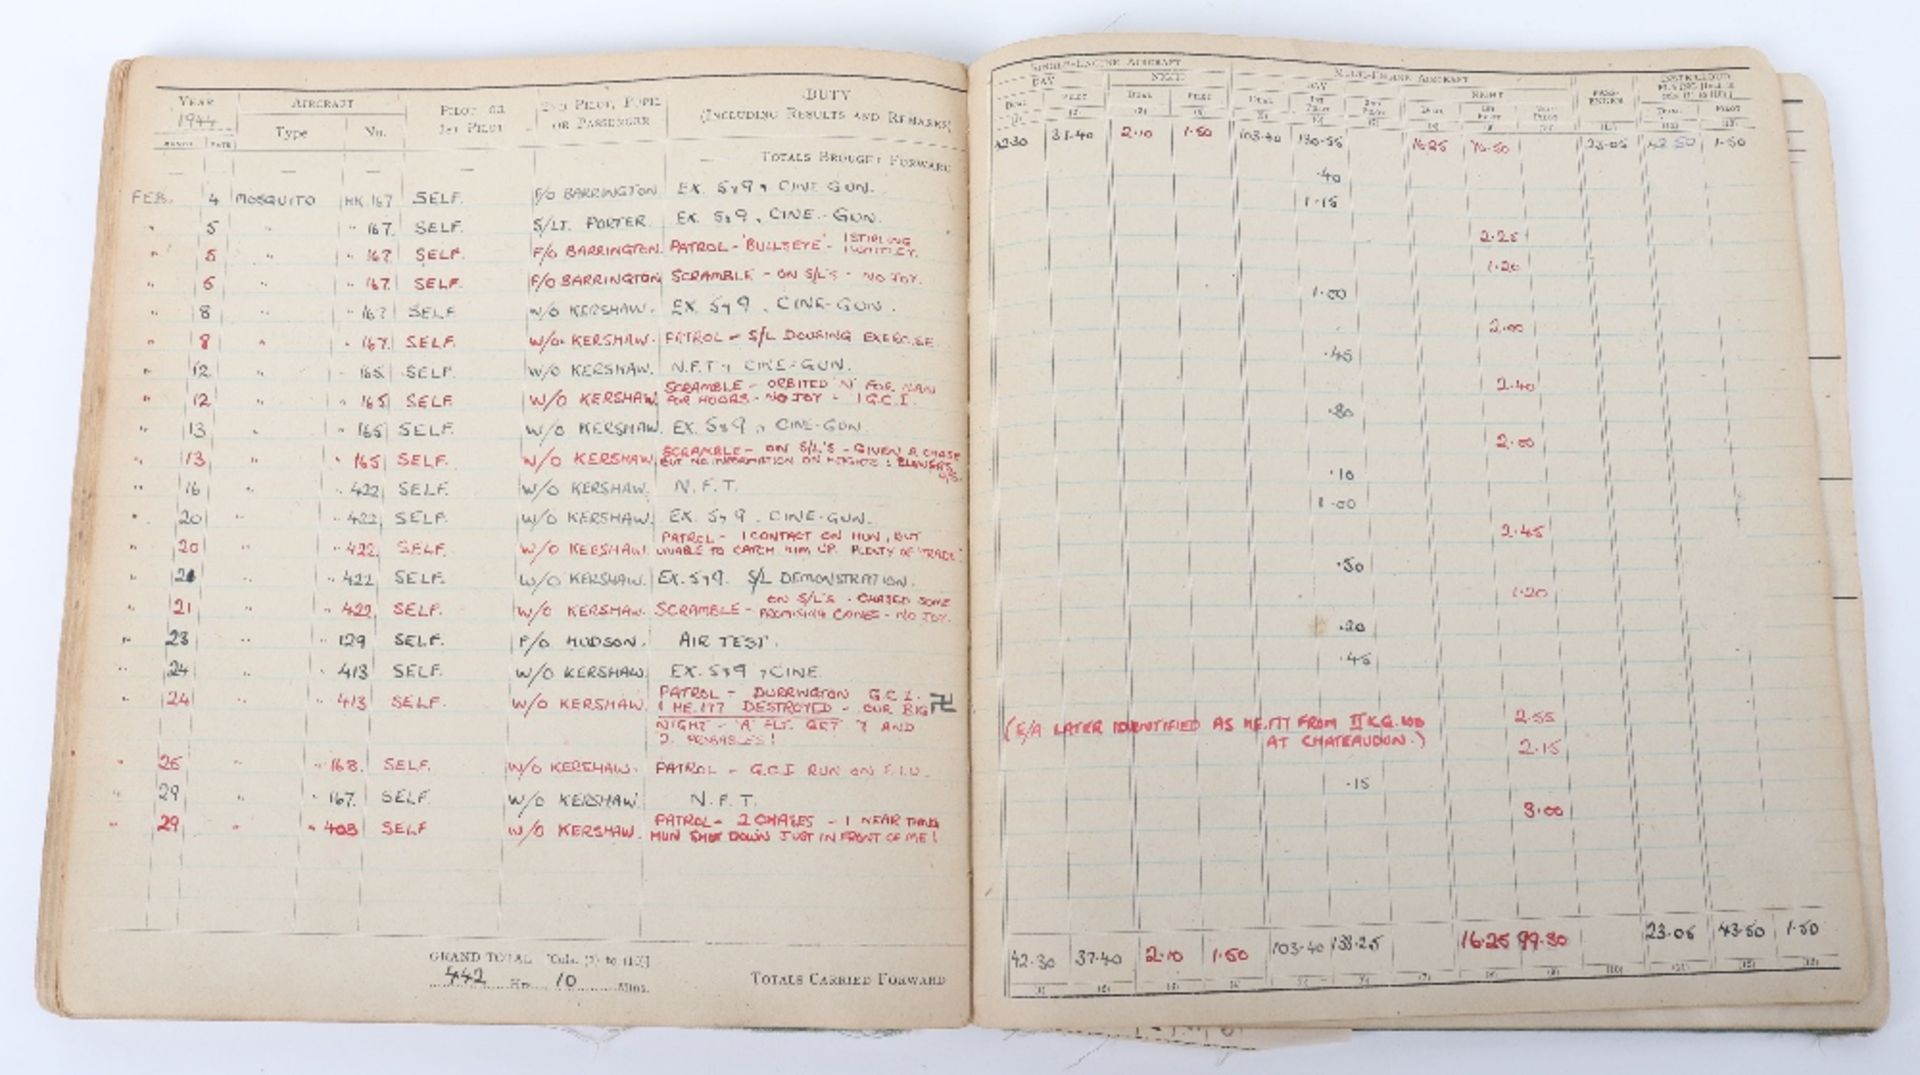 YEAR AIRCRAFT PILOT, OR 2ND PILOT, PUPIL DUTY
1944 Type No. 1ST PILOT OR PASSENGER (INCLUDING RESULTS AND REMARKS)
MONTH DATE
— — — — — TOTALS BROUGHT FORWARD
FEB. 4 MOSQUITO HK.167 SELF. F/O BARRINGTON EX. 5 & 9, CINE GUN.
" 5 " " 167. SELF. S/LT. PORTER. EX. 5 & 9, CINE-GUN.
" 5 " " 167. SELF. F/O BARRINGTON. PATROL - 'BULLSEYE' - 1 STIRLING
1 WHITLEY.
" 6 " " 167. SELF. F/O BARRINGTON SCRAMBLE - ON S/L'S - NO JOY.
" 8 " " 167 SELF. W/O KERSHAW. EX. 5 & 9, CINE-GUN.
" 8 " " 167. SELF. W/O KERSHAW. PATROL - S/L DOUSING EXERCISE.
" 12 " " 165 SELF. W/O KERSHAW. N.F.T. & CINE-GUN.
" 12 " " 165 SELF. W/O KERSHAW. SCRAMBLE - ORBITED 'N' FOR NAN
FOR HOURS - NO JOY - 1 G.C.I.
" 13 " " 165 SELF. W/O KERSHAW. EX. 5 & 9, CINE-GUN.
" 13 " " 165 SELF. W/O KERSHAW. SCRAMBLE - ON S/L'S - GIVEN A CHASE
BUT NO INFORMATION ON HEIGHTS
" 16 " " 422 SELF. W/O KERSHAW. N.F.T.
" 20 " " 422 SELF. W/O KERSHAW. EX. 5 & 9, CINE-GUN.
" 20 " " 422. SELF. W/O KERSHAW. PATROL - 1 CONTACT ON HUN, BUT
UNABLE TO CATCH HIM UP. PLENTY OF 'TRADE'.
" 21 " " 422 SELF. W/O KERSHAW. EX. 5 & 9. S/L DEMONSTRATION.
" 21 " " 422. SELF. W/O KERSHAW. SCRAMBLE - ON S/L'S - CHASED SOME
PROMISING CONES - NO JOY.
" 23 " " 129 SELF. F/O HUDSON. AIR TEST.
" 24 " " 413 SELF. W/O KERSHAW. EX. 5 & 9, CINE.
" 24 " " 413 SELF. W/O KERSHAW. PATROL - DURRINGTON G.C.I.
1 HE.177 DESTROYED - OUR BIG
NIGHT - 'A' FLT. GET 7 AND
2 PROBABLES!
" 25 " " 168. SELF. W/O KERSHAW. PATROL - G.C.I RUN ON F.I.U.
" 29 " " 167. SELF. W/O KERSHAW. N.F.T.
" 29 " " 403 SELF W/O KERSHAW. PATROL - 2 CHASES - 1 NEAR THING
HUN SHOT DOWN JUST IN FRONT OF ME!
GRAND TOTAL [Cols. (1) to (10)]
442 Hrs. 10 Mins. TOTALS CARRIED FORWARD
SINGLE-ENGINE AIRCRAFT MULTI-ENGINE AIRCRAFT PASS-ENGER INSTR/CLOUD FLYING
DAY NIGHT DAY NIGHT
DUAL PILOT DUAL PILOT DUAL 1ST PILOT 2ND PILOT DUAL 1ST PILOT 2ND PILOT DUAL PILOT
42.30 37.40 2.10 1.50 103.40 130.55 16.25 76.50 23.05 42.50 1.50
.40
1.15
2.25
1.20
1.00
2.00
.45
2.40
.30
2.00
.10
1.00
2.45
.50
1.20
.20
.45
(E/A LATER IDENTIFIED AS HE.177 FROM II KG.100 2.55
AT CHATEAUDUN.) 2.15
.15
3.00
42.30 37.40 2.10 1.50 103.40 138.25 16.25 99.30 23.05 43.50 1.50
(1) (2) (3) (4) (5) (6) (7) (8) (9) (10) (11) (12) (13)